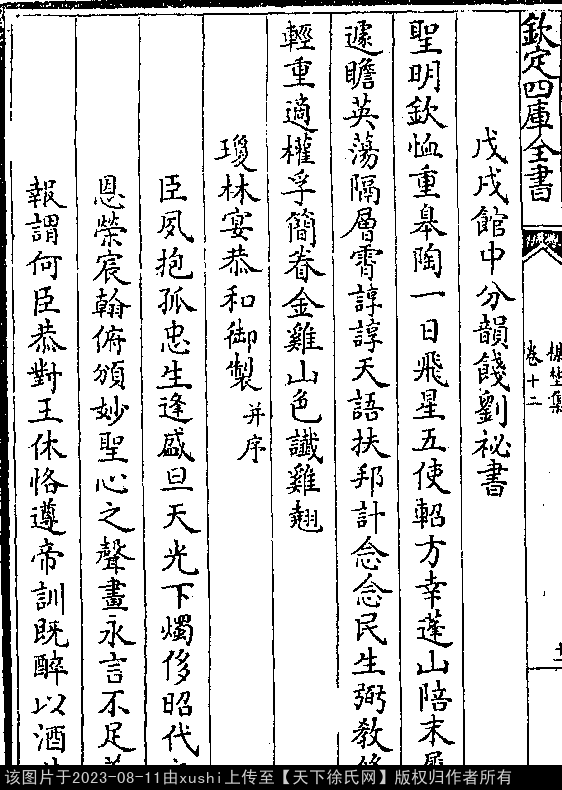 欽定四庫全書
卷十二
戊戌館中分韻餞劉祕書
聖明欽恤重皋陶一日飛星五使軺方幸蓬山陪末
遽瞻英蕩隔層霄諄諄天語扶邦計念念民生弼教
輕重適權孚簡眷金雞山色讖雞翹
瓊林宴恭和御製并序
臣夙抱孤忠生逢盛旦天光下燭侈昭代
恩榮宸翰俯頒妙聖心之聲畫永言不足
報謂何臣恭對王休恪遵帝訓既醉以酒
该图片于2023-08-11由xushi上传至【天下徐氏网】版权归作者所有